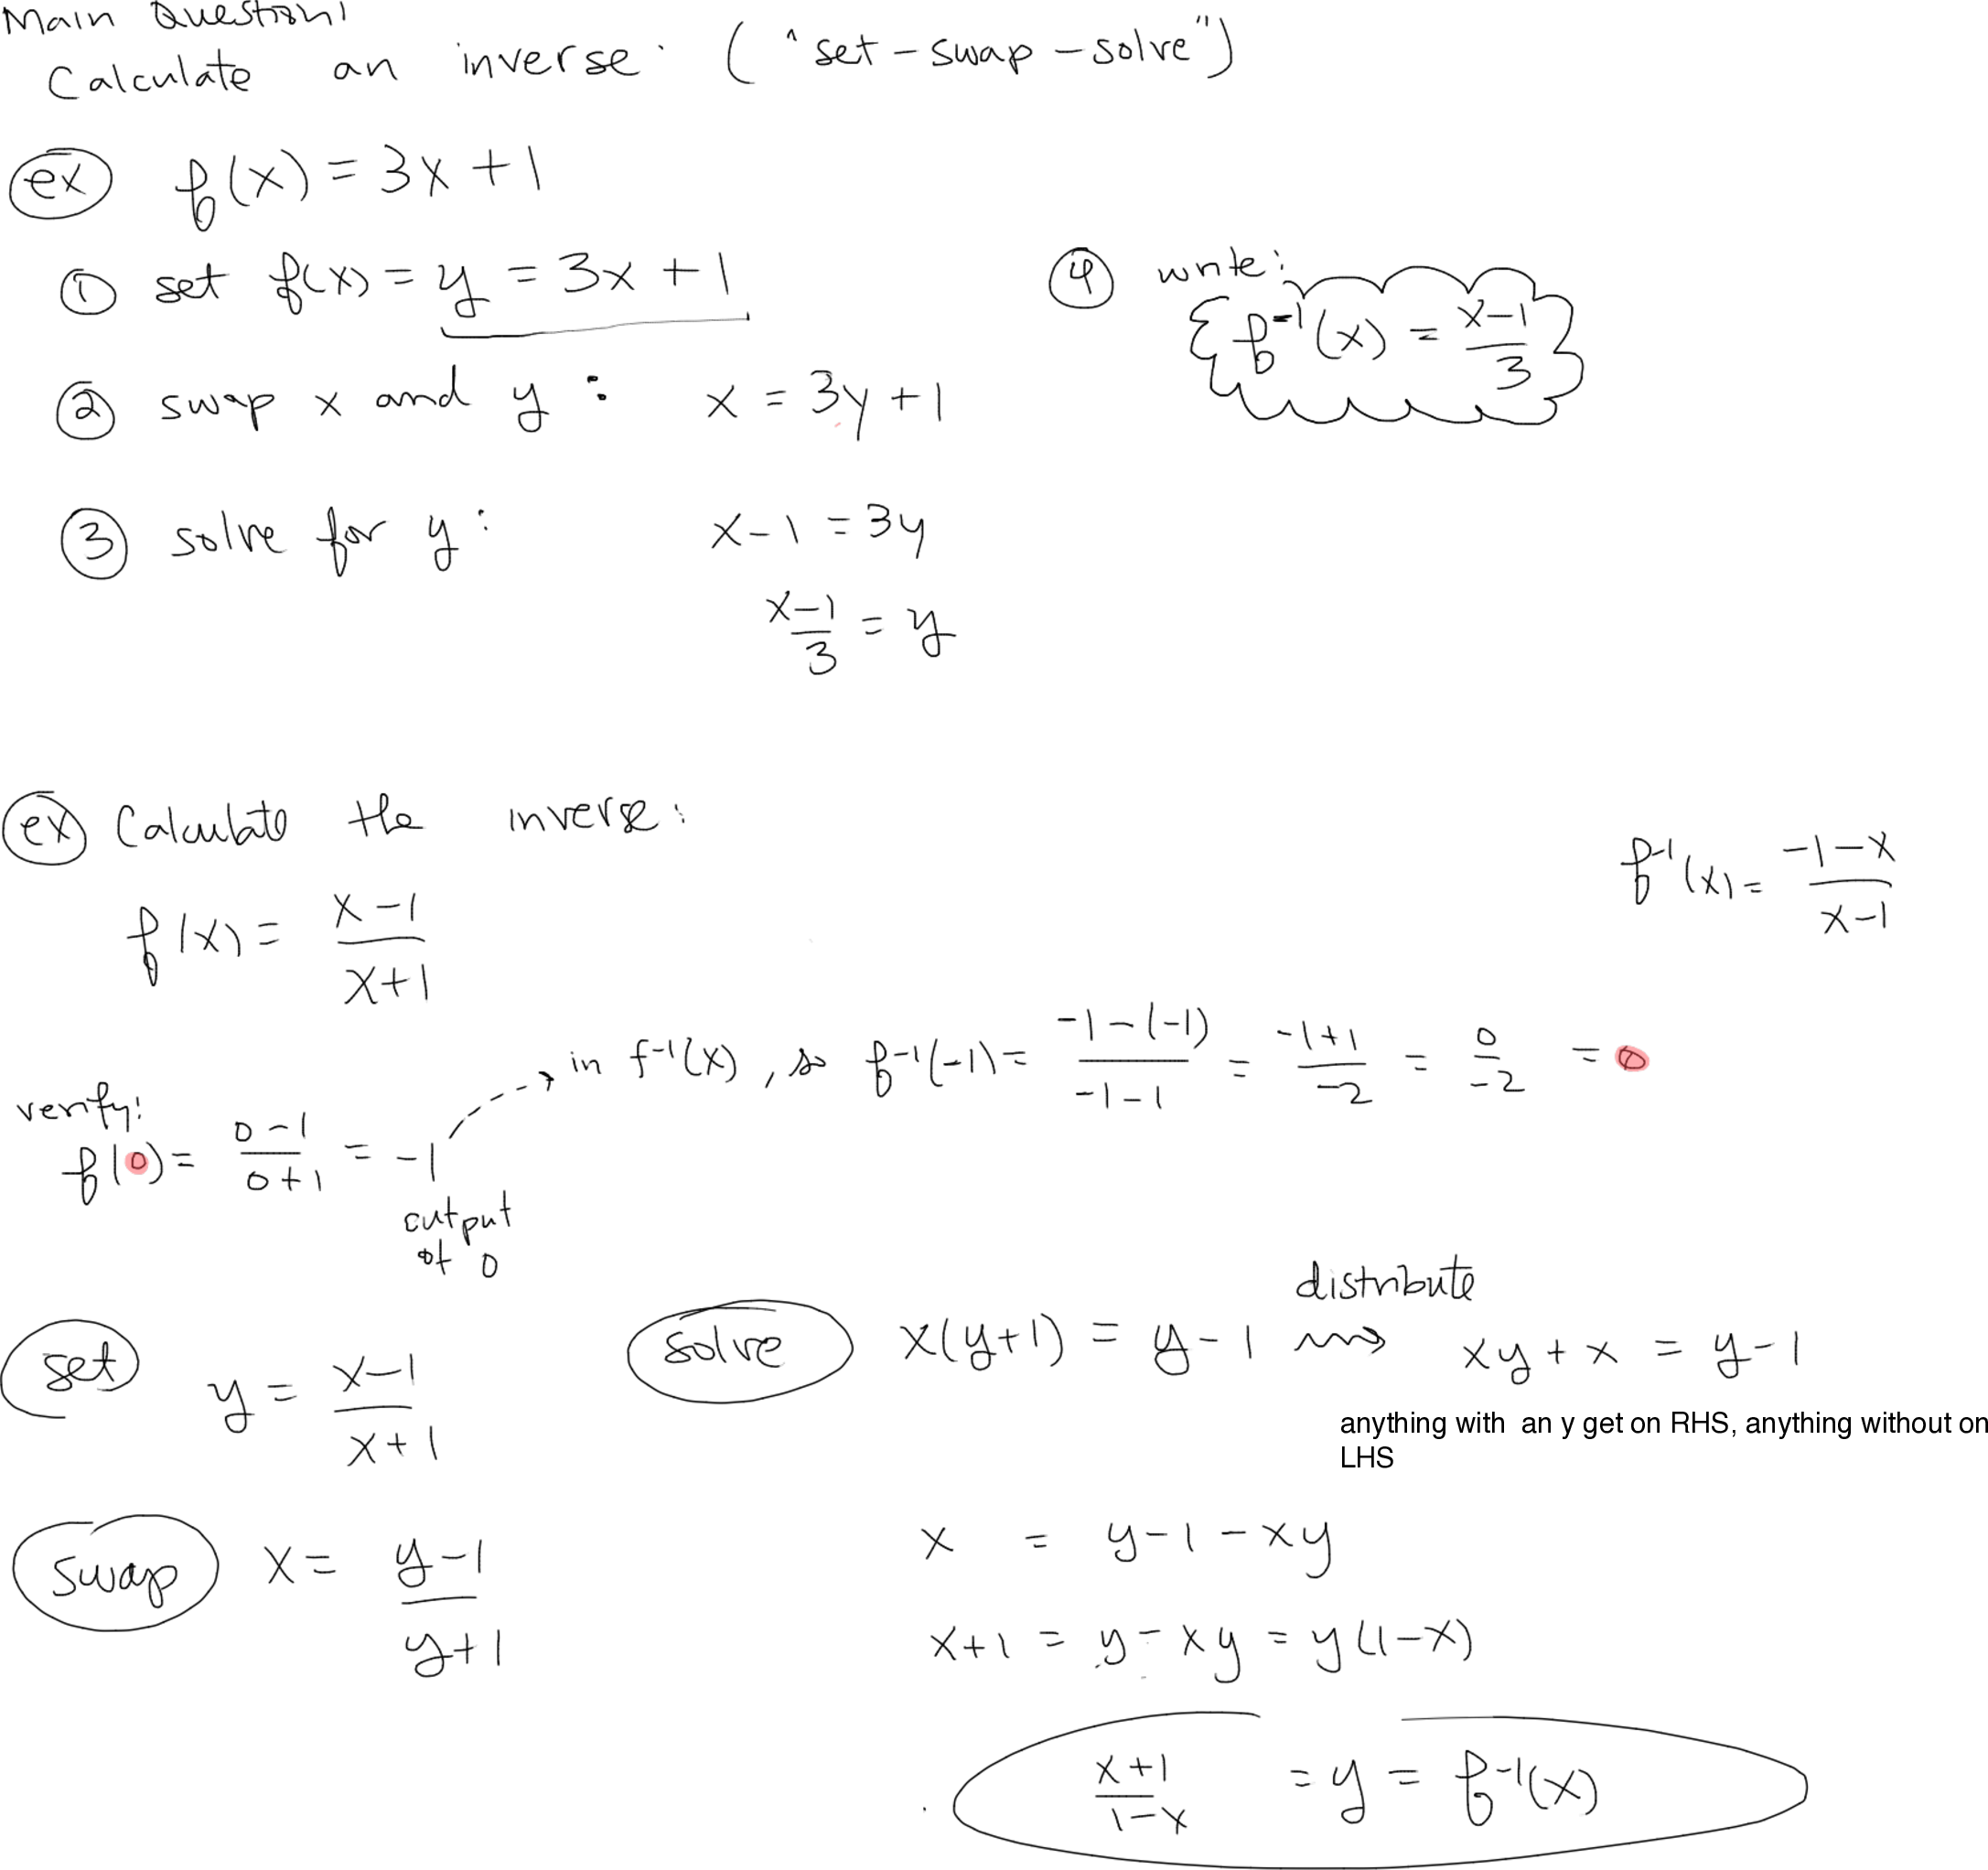 Main Question:
Calculate an inverse. ("set-swap-solve")
ex f(x) = 3x + 1
① set f(x) = y = 3x + 1
② swap x and y : x = 3y + 1
③ solve for y : x - 1 = 3y
x-1/3 = y
④ write:
f⁻¹(x) = x-1/3
ex Calculate the inverse:
f(x) = x-1/x+1
f⁻¹(x) = -1-x/x-1
verify:
f(0) = 0-1/0+1 = -1
output
of 0
in f⁻¹(x), so f⁻¹(-1) = -1-(-1)/-1-1 = -1+1/-2 = 0/-2 = 0
set y = x-1/x+1
swap x = y-1/y+1
solve x(y+1) = y-1 distribute xy + x = y-1
anything with an y get on RHS, anything without on
LHS
x = y-1-xy
x+1 = y-xy = y(1-x)
x+1/1-x = y = f⁻¹(x)